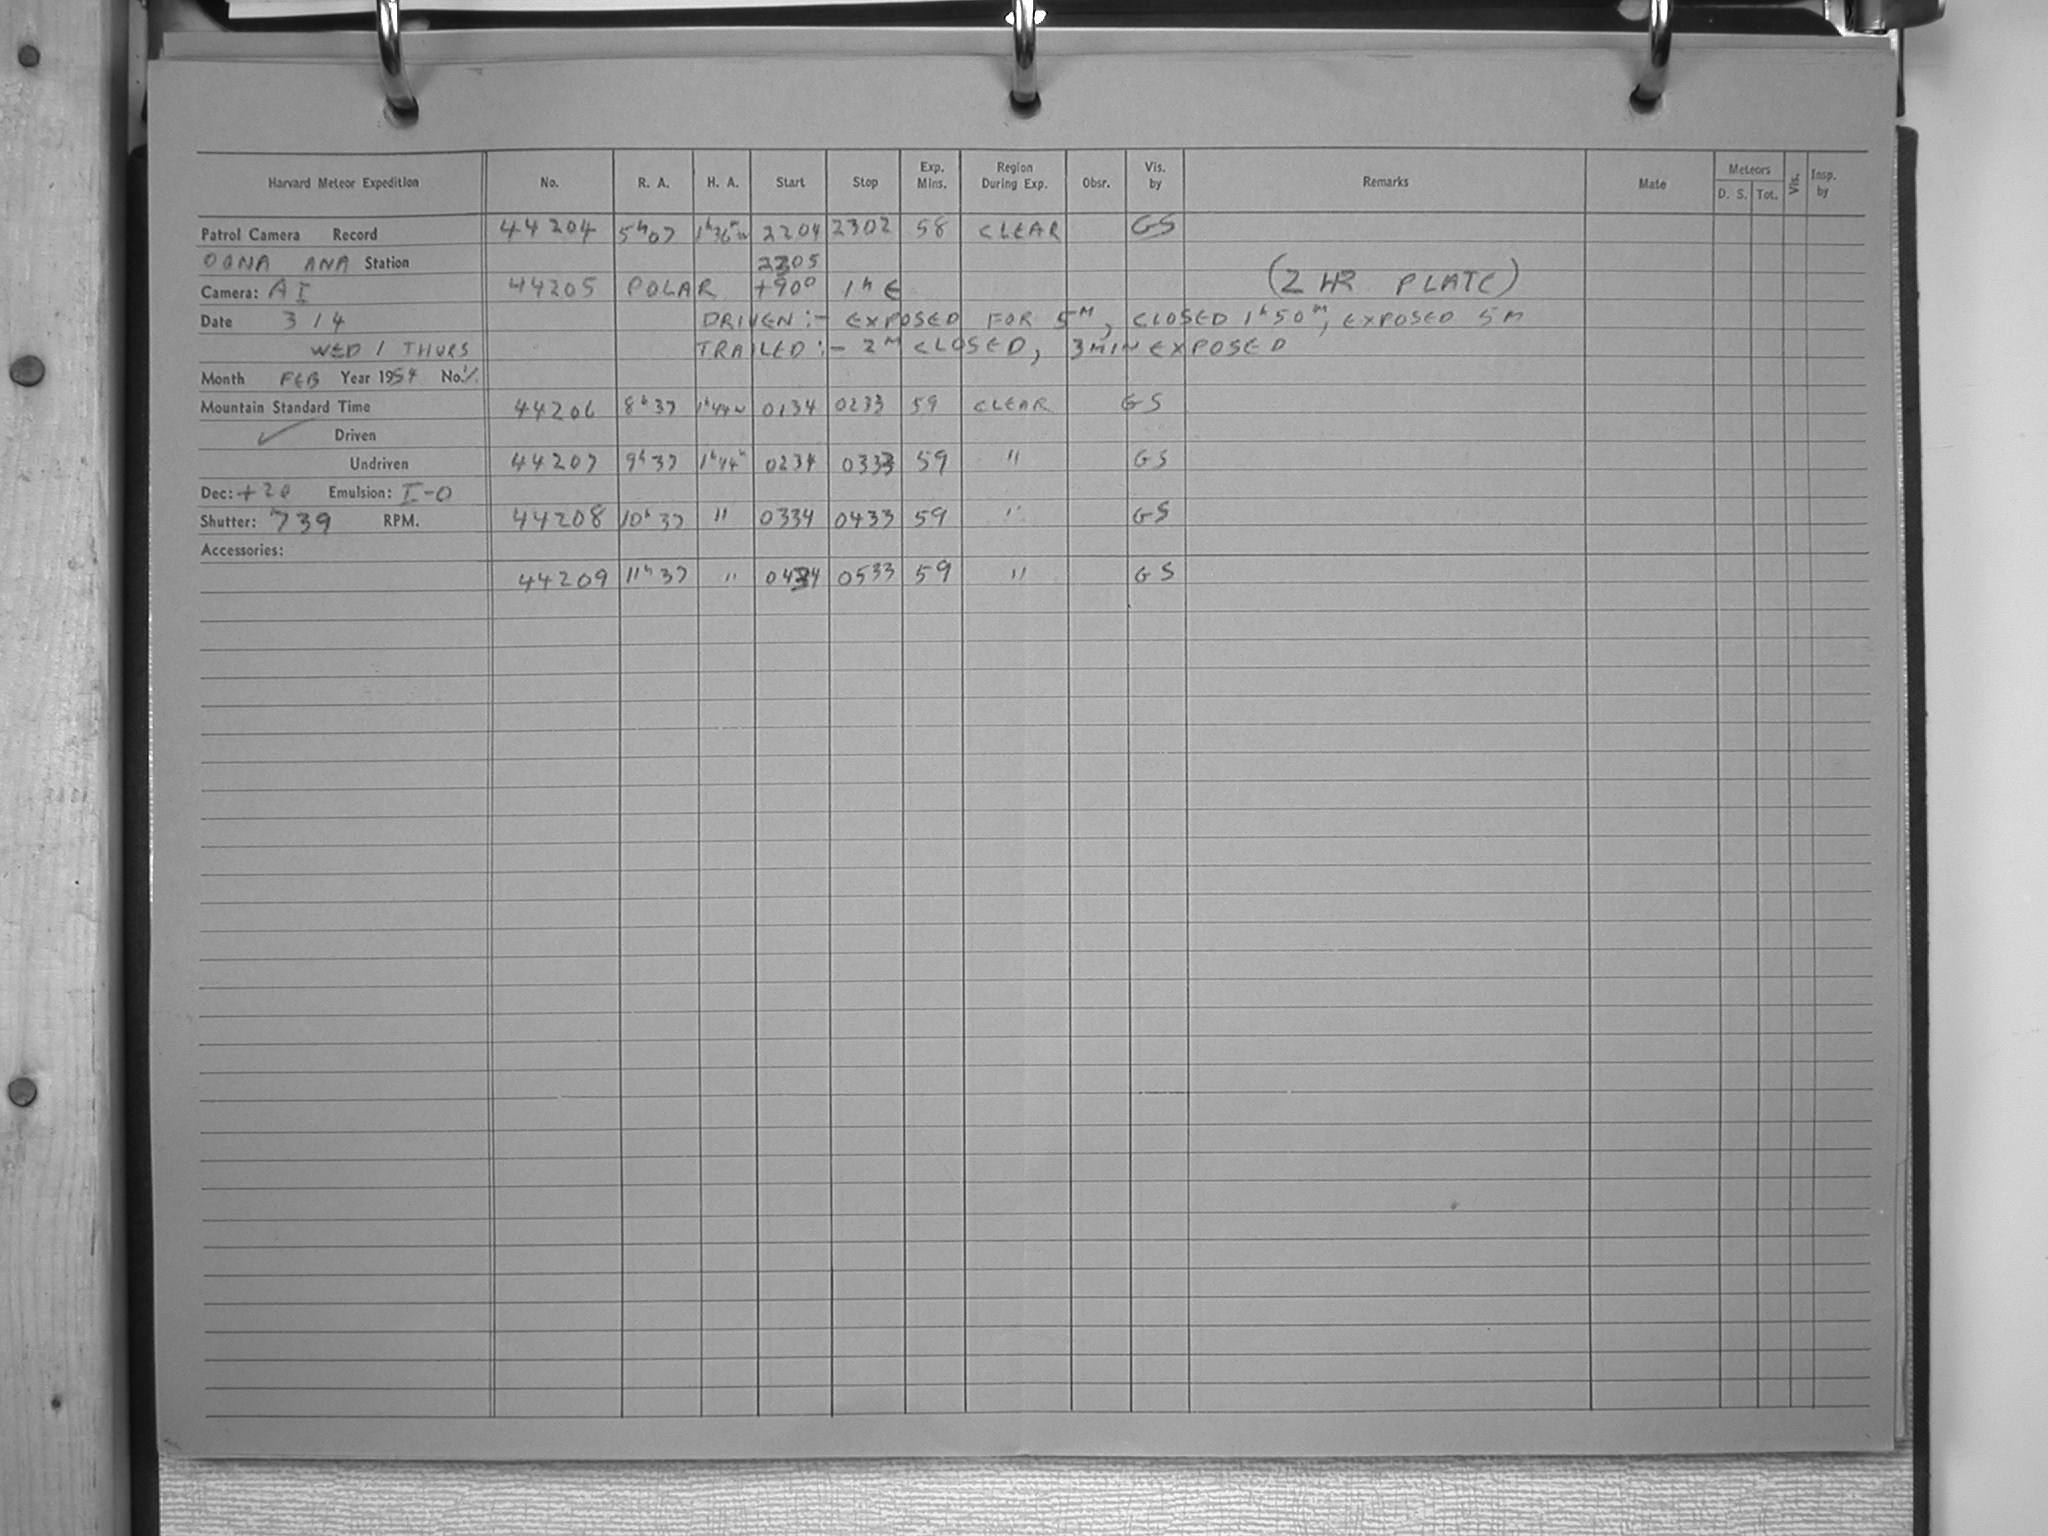 Harvard Meteor Expedition No. R. A. H. A. Start Stop Exp. Mins. Region During Exp. Obsr. Vis. by Remarks Mate Meteors D. S. Tot. Vis. Insp. by
Patrol Camera Record 44204 5ʰ07 1ʰ36ᵐW 2204 2302 58 CLEAR GS
DONA ANA Station 2305
Camera: AI 44205 POLAR +90° 1ʰ E (2 HR PLATE)
Date 3/4 DRIVEN:- EXPOSED FOR 5ᴹ, CLOSED 1ʰ50ᵐ, EXPOSED 5M
WED / THURS TRAILED:- 2ᴹ CLOSED, 3MIN EXPOSED
Month FEB Year 1954 No.
Mountain Standard Time 44206 8ʰ37 1ʰ44W 0134 0233 59 CLEAR GS
✓ Driven
Undriven 44207 9ʰ37 1ʰ44 0234 0333 59 " GS
Dec: +20 Emulsion: I-O
Shutter: 739 RPM. 44208 10ʰ37 " 0334 0433 59 " GS
Accessories:
44209 11ʰ37 " 0434 0533 59 " GS